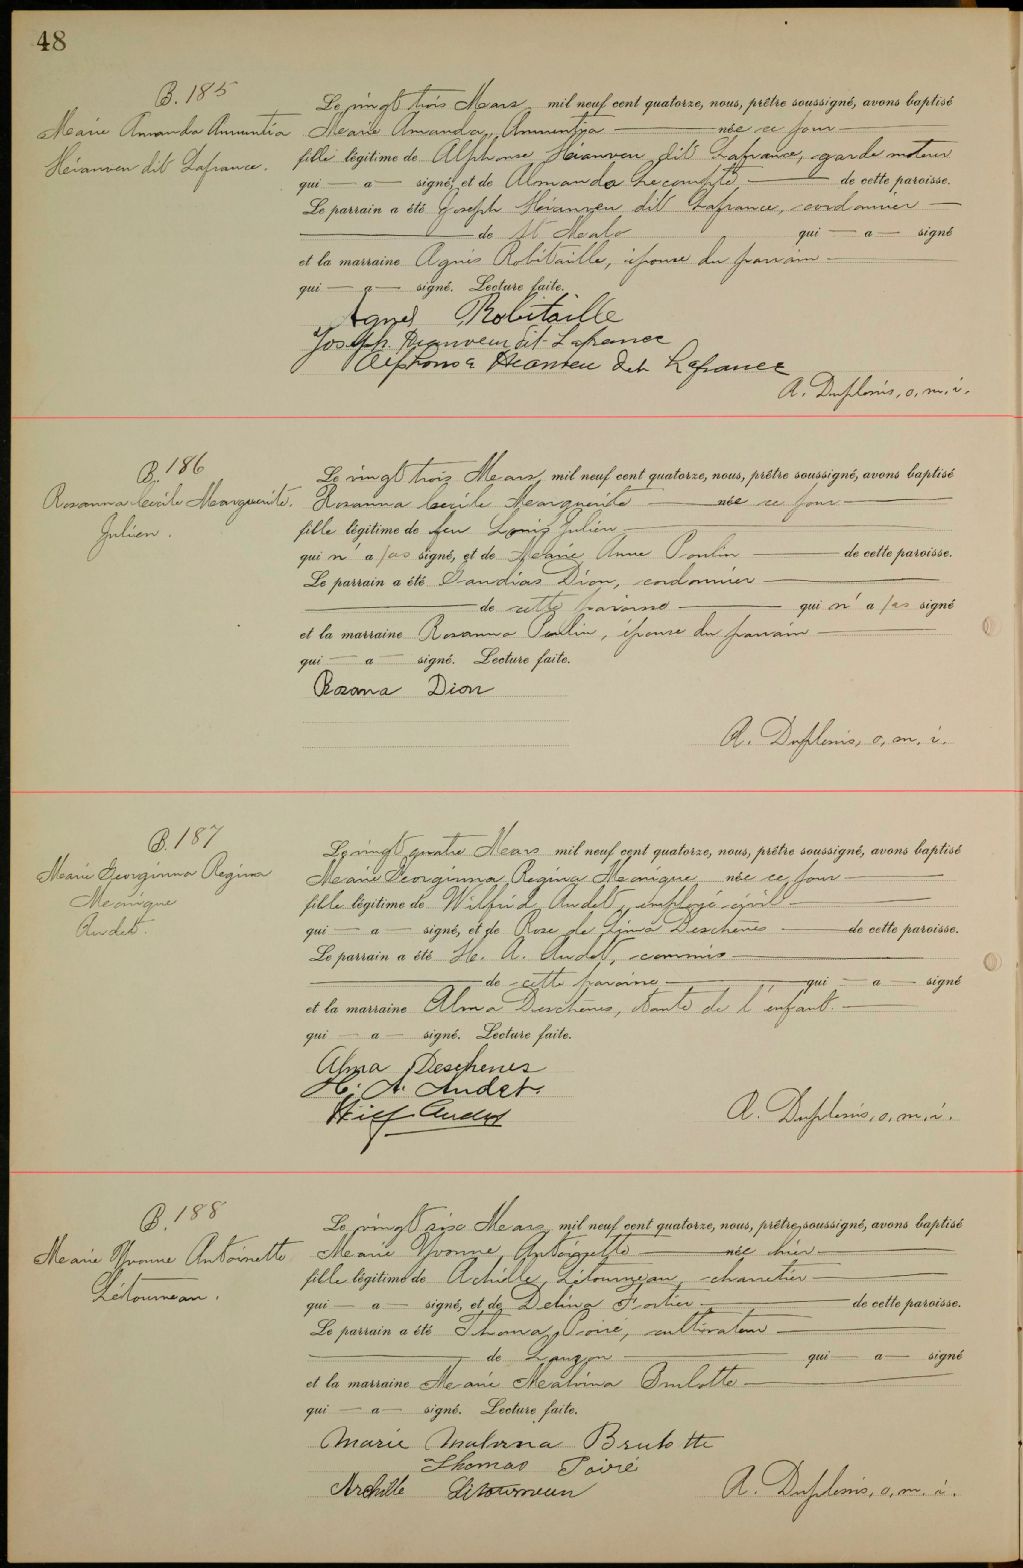 48
B. 185
Marie Amanda Annuntia
Héianveu dit Lafrance.
Le vingt trois Mars mil neuf cent quatorze, nous, prêtre soussigné, avons baptisé
Marie Amanda, Annuntia — née ce jour —
fille légitime de Alphonse Héianveu dit Lafrance, garde moteur
qui — a — signé, et de Almanda Lecompte — de cette paroisse.
Le parrain a été Joseph Héianveu dit Lafrance, cordonnier —
— de St Malo qui — a — signé
et la marraine Agnès Robitaille, épouse du parrain —
qui — a — signé. Lecture faite.
Agnes Robitaille
Joseph Heanveu dit Lafrance
Alphonse Heanveu dit Lafrance
A. Duplenis, o, m, i.
B. 186
Rosanna Cécile Marguerite.
Julien.
Le vingt trois Mars, mil neuf cent quatorze, nous, prêtre soussigné, avons baptisé
Rosanna Cécile Marguerite — née ce jour —
fille légitime de feu Louis Julien —
qui n' a pas signé, et de Marie Anne Poulin — de cette paroisse.
Le parrain a été Gaudias Dion, cordonnier —
— de cette paroisse — qui n' a pas signé
et la marraine Rosanna Poulin, épouse du parrain —
qui — a — signé. Lecture faite.
Rosana Dion
A. Duplenis, o, m, i.
B. 187
Marie Georginna Regina
Monique
Audet.
Le vingt quatre Mars mil neuf cent quatorze, nous, prêtre soussigné, avons baptisé
Marie Georginna Regina Monique née ce jour —
fille légitime de Wilfrid Audet, employé civil —
qui — a — signé, et de Rose de Lima Deschênes — de cette paroisse.
Le parrain a été H. A. Audet, commis —
— de cette paroisse — qui — a — signé
et la marraine Alma Deschênes, tante de l'enfant. —
qui — a — signé. Lecture faite.
Alma Deschenes
H. A. Audet.
Wilf Audet
A. Duplenis, o, m, i.
B. 188
Marie Yvonne Antoinette
Létourneau.
Le vingt six Mars mil neuf cent quatorze, nous, prêtre soussigné, avons baptisé
Marie Yvonne Antoinette — née hier —
fille légitime de Achille Létourneau, charretier —
qui — a — signé, et de Delina Fortier — de cette paroisse.
Le parrain a été Thomas Poiré, cultivateur —
— de Lauzon — qui — a — signé
et la marraine Marie Malvina Brulotte —
qui — a — signé. Lecture faite.
Marie Malvina Brulotte
Thomas Poiré
Archille Létourneau
A. Duplenis, o, m. i.